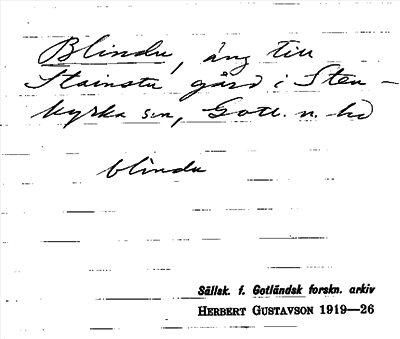 Blindu, äng till
Stainstu gård i Sten-
kyrka sn, Gotl. n. hd
blindu
Sällsk. f. Gotländsk forskn. arkiv
HERBERT GUSTAVSON 1919—26